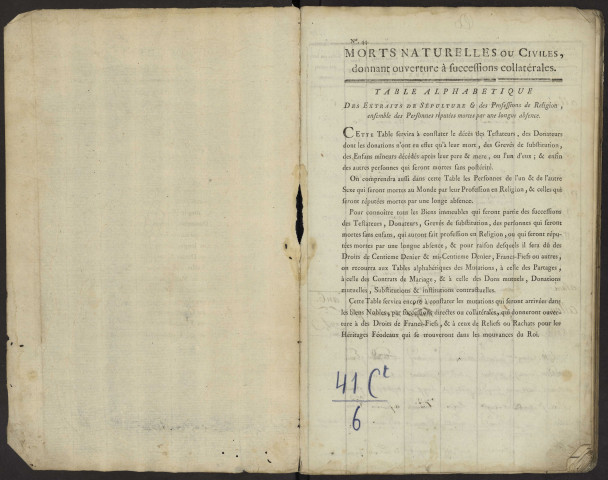 MORTS NATURELLES OU CIVILES,
donnant ouverture à successions collatérales.
TABLE ALPHABETIQUE
DES EXTRAITS DE SÉPULTURE & des Professions de Religion,
ensemble des Personnes réputées mortes par une longue absence.
CETTE Table servira à constater le décès des Testateurs, des Donateurs
dont les donations n'ont eu effet qu'à leur mort, des Grevés de substitution,
des Enfans mineurs décédés après leur pere & mere, ou l'un d'eux; & enfin
des autres personnes qui seront mortes sans postérité.
On comprendra aussi dans cette Table les Personnes de l'un & de l'autre
Sexe qui seront mortes au Monde par leur Profession en Religion, & celles qui
seront réputées mortes par une longe absence.
Pour connoître tous les Biens immeubles qui seront partie des successions
des Testateurs, Donateurs, Grevés de substitution, des personnes qui seront
mortes sans enfans, qui auront fait profession en Religion, ou qui seront répu-
tées mortes par une longue absence, & pour raison desquels il sera dû des
Droits de Centieme Denier & mi-Centieme Denier, Francs-Fiefs ou autres,
on recourra aux Tables alphabétiques des Mutations, à celle des Partages,
à celle des Contrats de Mariage, & à celle des Dons mutuels, Donations
mutuelles, Substitutions & institutions contractuelles.
Cette Table servira encore à constater les mutations qui seront arrivées dans
les biens Nobles, par successions directes ou collatérales, qui donneront ouver-
ture à des Droits de Francs-Fiefs, & à ceux de Reliefs ou Rachats pour les
Héritages Féodeaux qui se trouveront dans les mouvances du Roi.
41 Ct
6